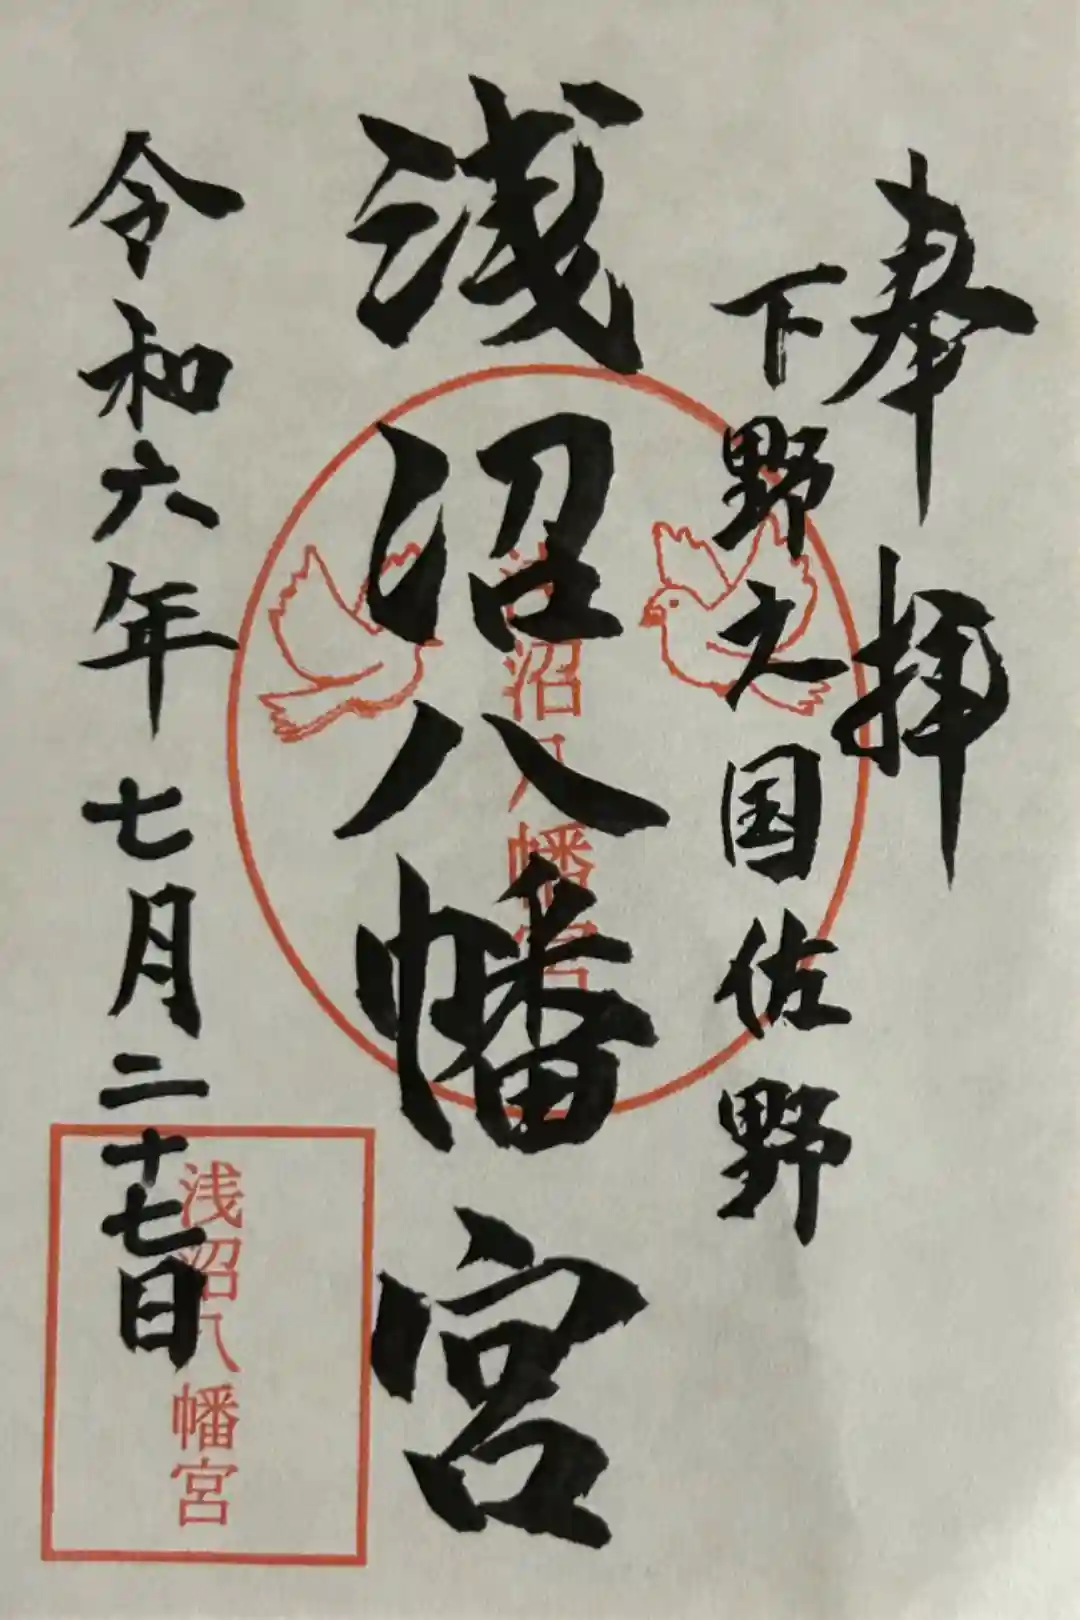 奉拝
下野之国佐野
浅沼八幡宮
浅沼八幡宮
令和六年七月二十七日
浅沼八幡宮